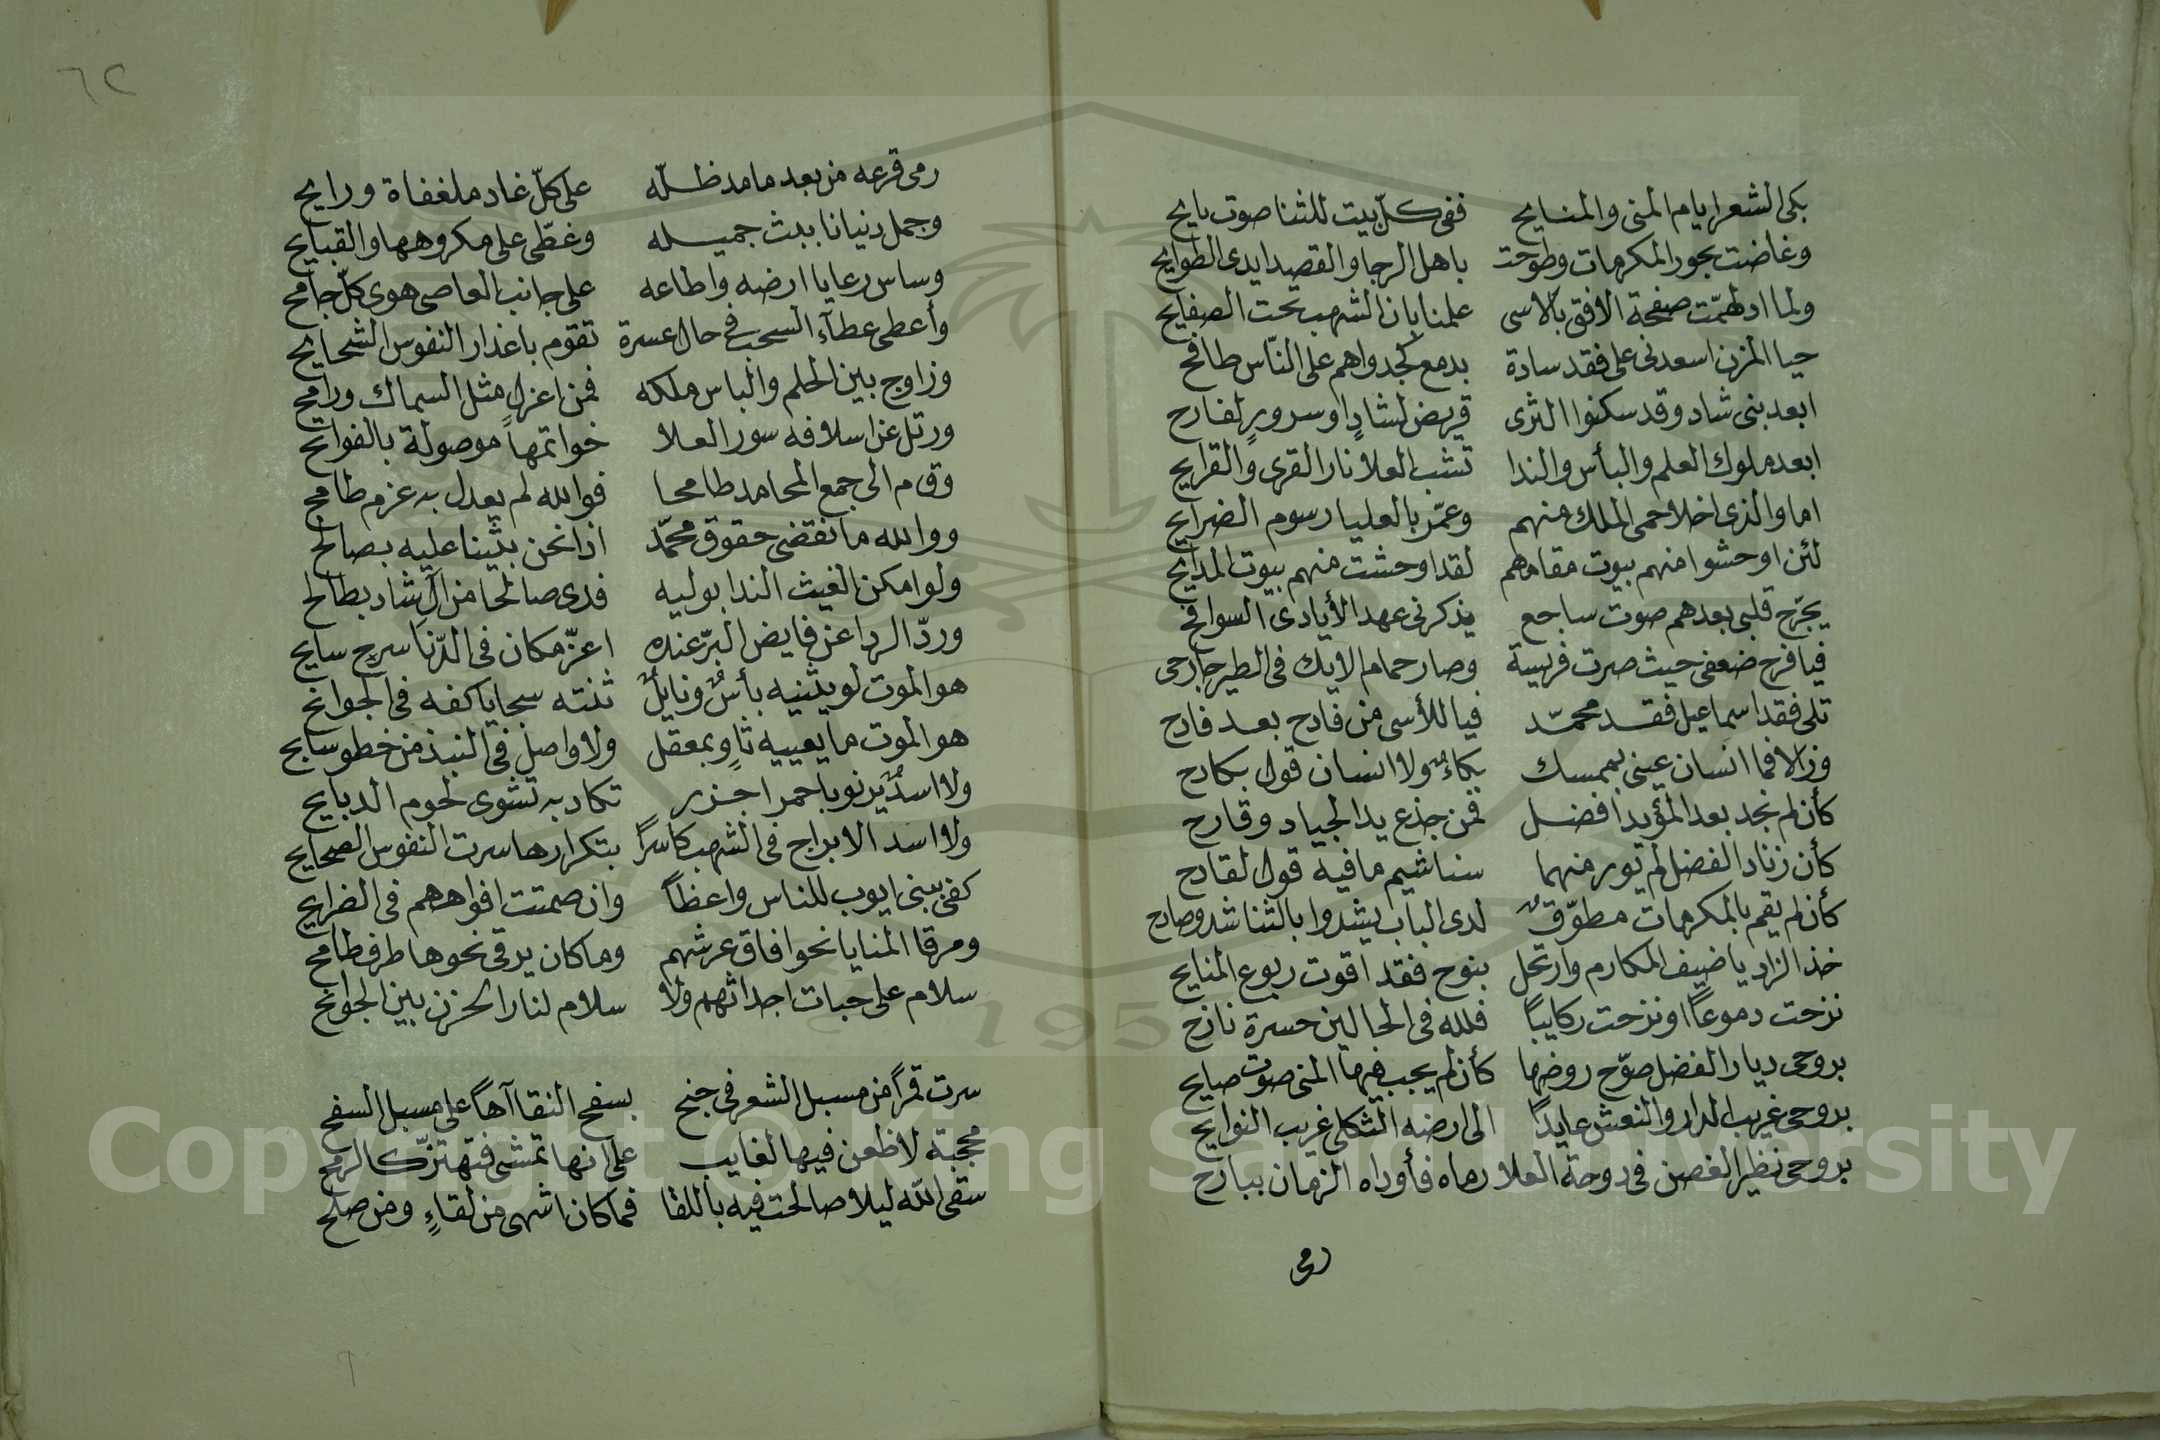 بكى الشعر ايام المنى والمنايح ففى كل بيت للثنا صوت نايح
وغاضت بحور المكرمات وطوحت باهل الرجا والقصد ايدى الطوايح
ولما ادلهمّت صفحة الافق بالاسى علمنا بان الشهب تحت الصفايح
حيا المزن اسعدنى على فقد سادة بدمع كجدواهم على النّاس طافح
ابعد بنى شاد وقد سكنوا الثرى قريض لشادٍ او سرورٍ لفارح
ابعد ملوك العلم والبأس والندا تشب العلا نار القرى والقرايح
اما والذى اخلا حمى الملك منهم وعمّر بالعليا رسوم الضرايح
لئن اوحشوا منهم بيوت مقامهم لقد اوحشت منهم بيوت المدايح
يجرّح قلبى بعدهم صوت ساجع يذكرنى عهد الأيادى السوافح
فيا فرح ضعفى حيث صرت فريسة وصار حمام الايك فى الطير جارحى
تلى فقد اسماعيل فقد محمّد فيا للأسى من فادح بعد فادح
وزالا فما انسان عينى بممسك بكاءً ولا انسان قول بكادح
كأن لم نجد بعد المؤيد افضل فمن جذع يد الجياد وقارح
كأن زناد الفضل لم تور منهما سنا شيم ما فيه قول لقادح
كأن لم يقم بالمكرمات مطوّقٌ لدى الباب يشدوا بالثنا شدو صادح
خذ الزاد يا ضيف المكارم وارتحل بنوح فقد اقوت ربوع المنايح
نزحت دموعاً او نزحت ركايبًا فلله فى الحالين حسرة نازح
بروحى ديار الفضل صوّح روضها كأن لم يجب فيها المنى صوت صايح
بروحى غريب الدار والنعش عايدًا الى ارضه الثكلى غريب النوايح
بروحى نظير الغصن فى دوحة العلا رماه فأوداه الزمان ببارح
رمى
٦٢
رمى قرعه من بعد ما مد ظلّه على كلّ غاد ملغفاة ورايح
وجمل دنيانا ببث جميله وغطّى على مكروهها والقبايح
وساس رعايا ارضه واطاعه على جانب العاصى هوى كلّ جامح
وأعطى عطآء السحب فى حال عسرة تقوم باعذار النفوس الشحايح
وزاوج بين الحلم والباس ملكه فمن اعزلٍ مثل السماك ورامح
ورتل عن اسلافه سور العلا خواتمها موصولة بالفوايح
وقام الى جمع المحامد طامحا فوالله لم يعدل به عزم طامح
ووالله ما نقضى حقوق محمّد اذا نحن بثينا عليه بصالح
ولو امكن الغيث الندا بوليه فدى صالحا من آل شاد بطالح
وردّ الردا عن فايض البرّ عنده اعزّ مكان فى الدّنا سرج سابح
هو الموت لو يثنيه بأسٌ ونايلٌ ثنته سجايا كفه فى الجوانح
هو الموت ما يعييه ثاوٍ بمعقل ولا واصل فى النبذ من خطو سابح
ولا اسدٌ يرنو باحمر اجزر تكاد به تشوى لحوم الدبايح
ولا اسد الابراج فى الشهب كاسرًا بتكرارها سرت النفوس الصحايح
كفى ببنى ايوب للناس واعظاً وان صمتت افواههم فى الضرايح
ومرقا المنايا نحو افاق عرشهم وما كان يرقى نحوها طرف طامح
سلام على حبات اجداثهم ولا سلام لنار الحزن بين الجوانح
سرت قمرًا من مسبل الشعر فى جنح بسفح النقا آهاً على مسبل السفح
محجبة لا ظعن فيها لغايب على انها تمشى فتهتزّ كالرمح
سقى الله ليلا صالحت فيه باللقا فما كان اشهى من لقاءٍ ومن صلح
Copyright © King Saud University